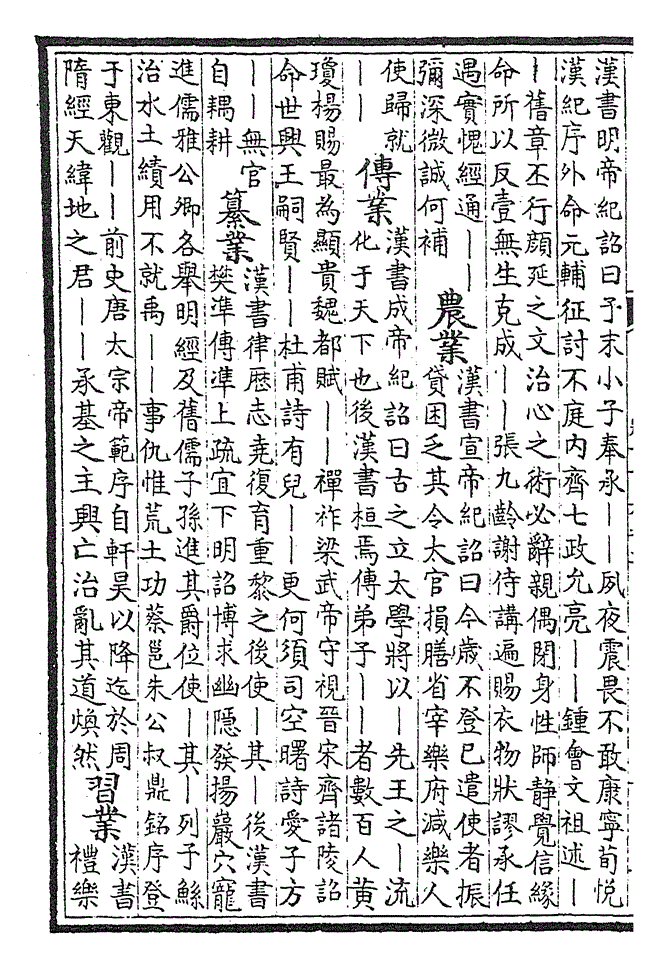 漢書明帝紀詔曰予末小子奉承——夙夜震畏不敢康寧荀悅
漢紀序外命元輔征討不庭內齊七政允亮——鍾會文祖述—
—舊章丕行顏延之文治心之術必辭親偶閉身性師靜覺信緣
命所以反壹無生克成——張九齡謝侍講遍賜衣物狀謬承任
遇實愧經通——
彌深微誠何補
農業
漢書宣帝紀詔曰今歲不登已遣使者振
貸困乏其令太官損膳省宰樂府減樂人
使歸就
——
傳業
漢書成帝紀詔曰古之立太學將以—先王之—流
化于天下也後漢書桓焉傳弟子——者數百人黃
瓊楊賜最為顯貴魏都賦——禪祚梁武帝守視晉宋齊諸陵詔
命世興王嗣賢——杜甫詩有兒——更何須司空曙詩愛子方
——無官
自耦耕
纂業
漢書律歷志堯復育重黎之後使—其—後漢書
樊準傳準上疏宜下明詔博求幽隱發揚巖穴寵
進儒雅公卿各舉明經及舊儒子孫進其爵位使—其—列子鯀
治水土績用不就禹——事仇惟荒土功蔡邕朱公叔鼎銘序登
于東觀——前史唐太宗帝範序自軒昊以降迄於周
隋經天緯地之君——承基之主興亡治亂其道煥然
習業
漢書
禮樂